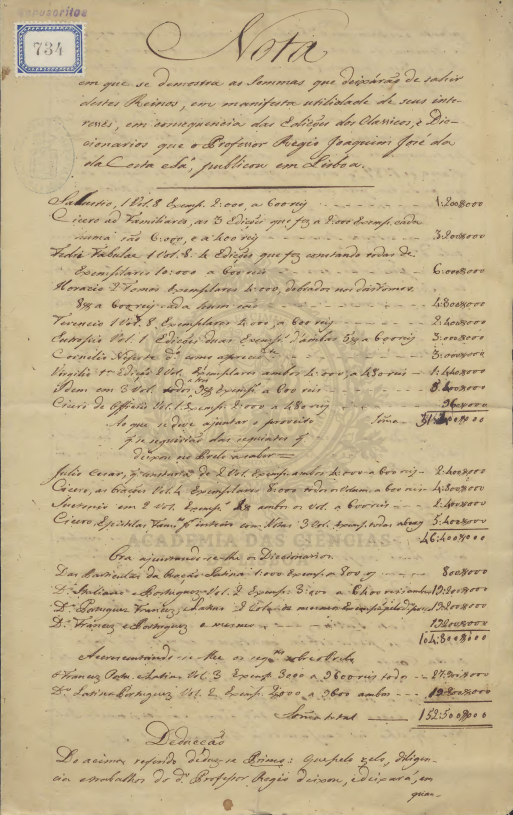 Manuscritos
734
Nota
em que se demostra as Sommas que deixarão de sahir
destes Reinos, em manifesta utilidade de seus inte-
resses, em consequencia das Edições dos Classicos, e Dic-
cionarios que o Professor Regio Joaquim José da
da Costa e Sá, publicou em Lisboa.
Salustio, 1 Vol. 8 Exemp. 2:000, a 600 reis 1:200$000
Cicero ad Familiares, as 3 Edições que fez a 2:000 Exemp. cada
huma são 6:000, e a 400 reis 3:200$000
Fedri Fabulae 1 Vol. 8. Edições que fez constando todas de
Exemplares 10:000 a 600 reis 6:000$000
Horacio 2 Tomos Exemplares 4:000, dobrados nos dois Tomos
8$ a 600 reis cada hum são 4:800$000
Terencio 1 Vol. 8. Exemplares 4:000, a 600 reis 2:400$000
Eutropio Vol. 1 Edições duas Exemp. d'ambas 5$ a 600 reis 3:000$000
Cornelio Nepote d.º como aprecede 3:000$000
Virgilio 1ª Edição 2 Vol. Exemplares ambos 4:000, a 480 reis 1:440$000
Idem em 3 Vol. todos Exemp. a 600 reis
Cicero de Officiis Vol. 1. Exemp. 2:000 a 480 reis 960$000
Ao que se deve ajuntar o proveito Soma
q. se seguirão das seguintes q.
deixou no Prelo a saber
Julio Cesar, q. constará de 2 Vol. Exemp. ambos 4:000 a 600 reis 2:400$000
Cicero, as Orações Vol. 4 Exemplares 8:000 todos os Volum. a 600 reis 4:800$000
Suetonio em 2 Vol. Exemp. ambos os Vol. a 600 reis 2:400$000
Cicero, Epistolas Fam. p. inteiro com Notas 3 Vol. Exemp. todos 5:400$000
46:400$000
ACADEMIA DAS CIÊNCIAS
DE LISBOA
Ora ajuntando-se-lhe os Diccionarios.
Das Particulas da Oração Latina 1:000 Exemp. a 800 r. 800$000
D.º Italiano e Portuguez Vol. 2 Exemp. 3:000 a 6400 reis ambos 19:200$000
D.º Portuguez Francez, e Latino
D.º Francez e Portuguez o mesmo
104:800$000
Acrescentando-se-lhe os seg. sobre o Prelo
o Francez Port. e Latino Vol. 3 Exemp. 3000 a 9600 reis todo
D.º Latino Portuguez Vol. 2 Exemp. 2:000 a 9600 ambos
Soma total 152:500$000
Dedução
Do acima referido dedus-se Primo: Que pelo zelo, diligen-
cia e trabalhos do d.º Professor Regio deixou, e deixará, em
quan-